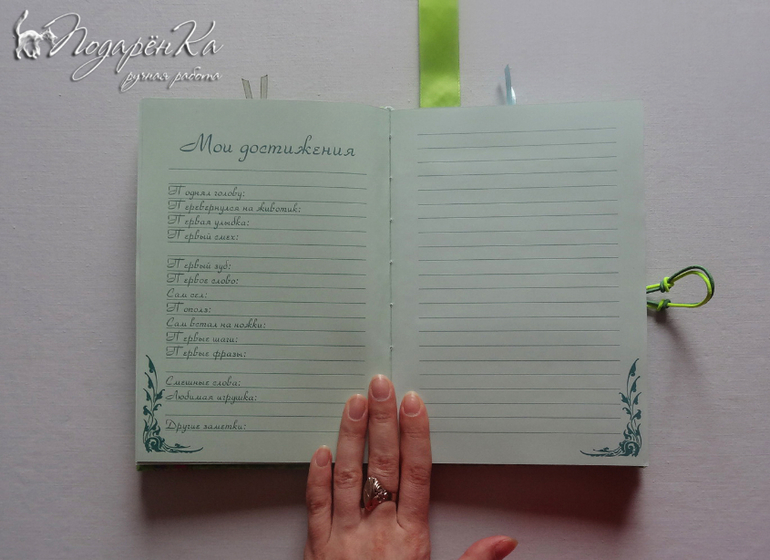 ПодарёнКа
ручная работа
Мои достижения
Поднял голову:
Перевернулся на животик:
Первая улыбка:
Первый смех:
Первый зуб:
Первое слово:
Сам сел:
Пополз:
Сам встал на ножки:
Первые шаги:
Первые фразы:
Смешные слова:
Любимая игрушка:
Другие заметки: